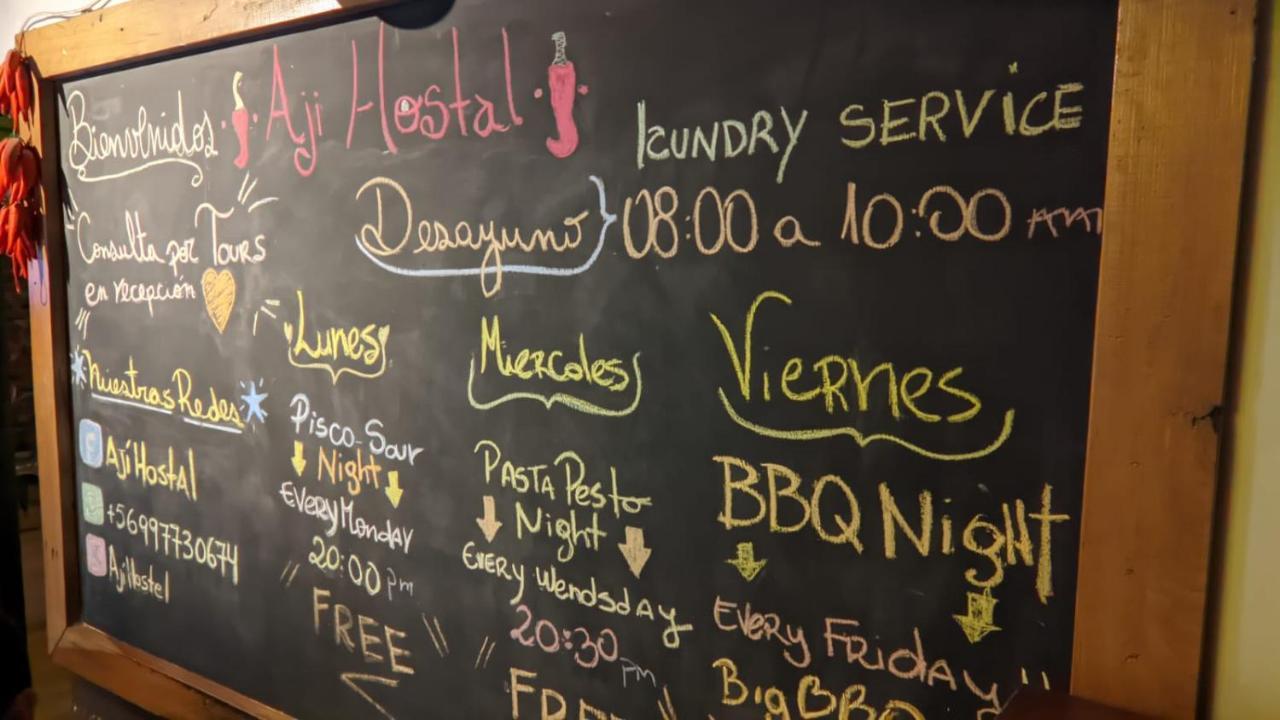 Bienvenidos Aji Hostal
Consulta por Tours
en recepción
LCUNDRY SERVICE
Desayuno 08:00 a 10:00 AM
Nuestras Redes
AjiHostAl
+56997730674
AjiHostel
Lunes
Pisco-Sour
Night
Every Monday
20:00 pm
FREE
Miercoles
PASTA Pesto
Night
Every Wendsday
20:30 pm
FREE
Viernes
BBQ Night
Every Friday
Big BBQ